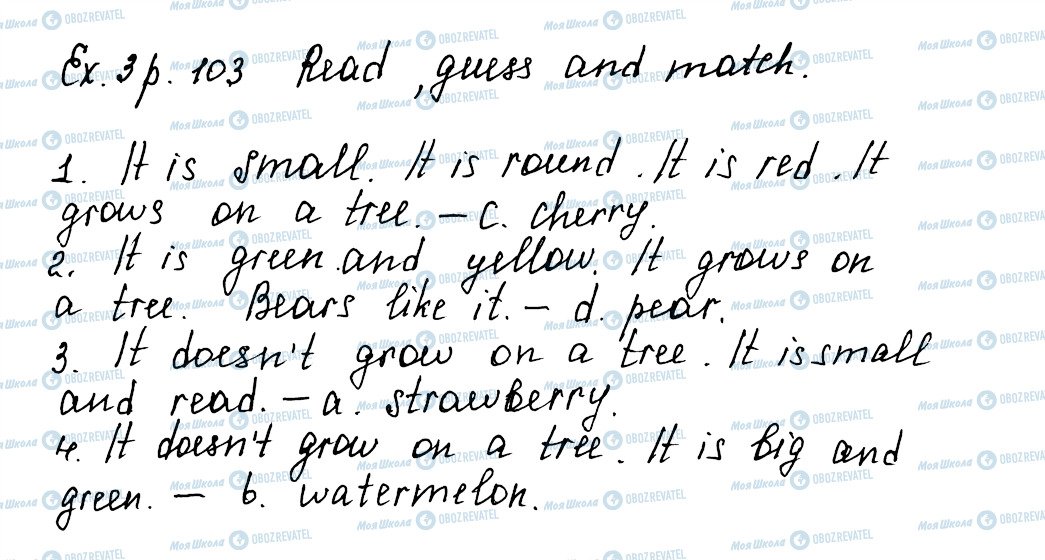 Ex. 3 p. 103 Read, guess and match.
1. It is small. It is round. It is red. It
grows on a tree. – c. cherry.
2. It is green and yellow. It grows on
a tree. Bears like it. – d. pear.
3. It doesn't grow on a tree. It is small
and read. – a. strawberry.
4. It doesn't grow on a tree. It is big and
green. – b. watermelon.
Моя Школа OBOZREVATEL